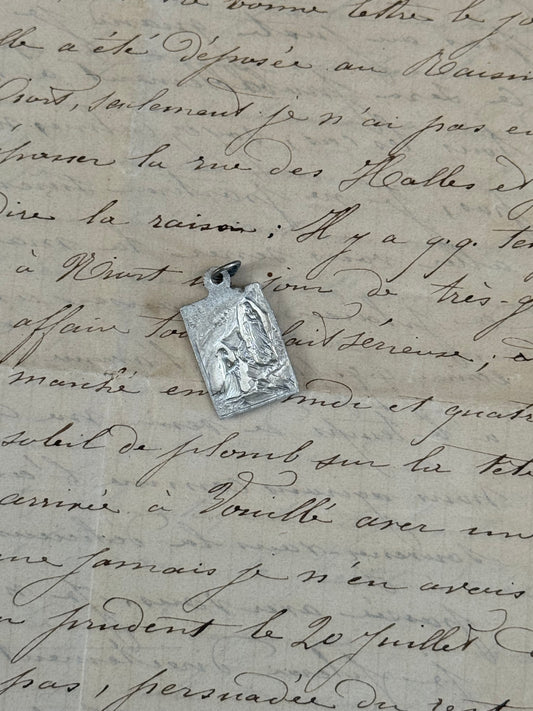 bonne lettre le jo
lle a été déposée au Raisin
Niort, seulement je n'ai pas en
passer la rue des Halles et
dire la raison; Il y a q.q. te
à Niort jour de très-g
affaire to fait sérieuse;
marché en midi et quatr
soleil de plomb sur la tête
arrivée à Vouillé avec un
jamais je n'en avais
prudent le 20 Juillet
pas, persuadée du rest